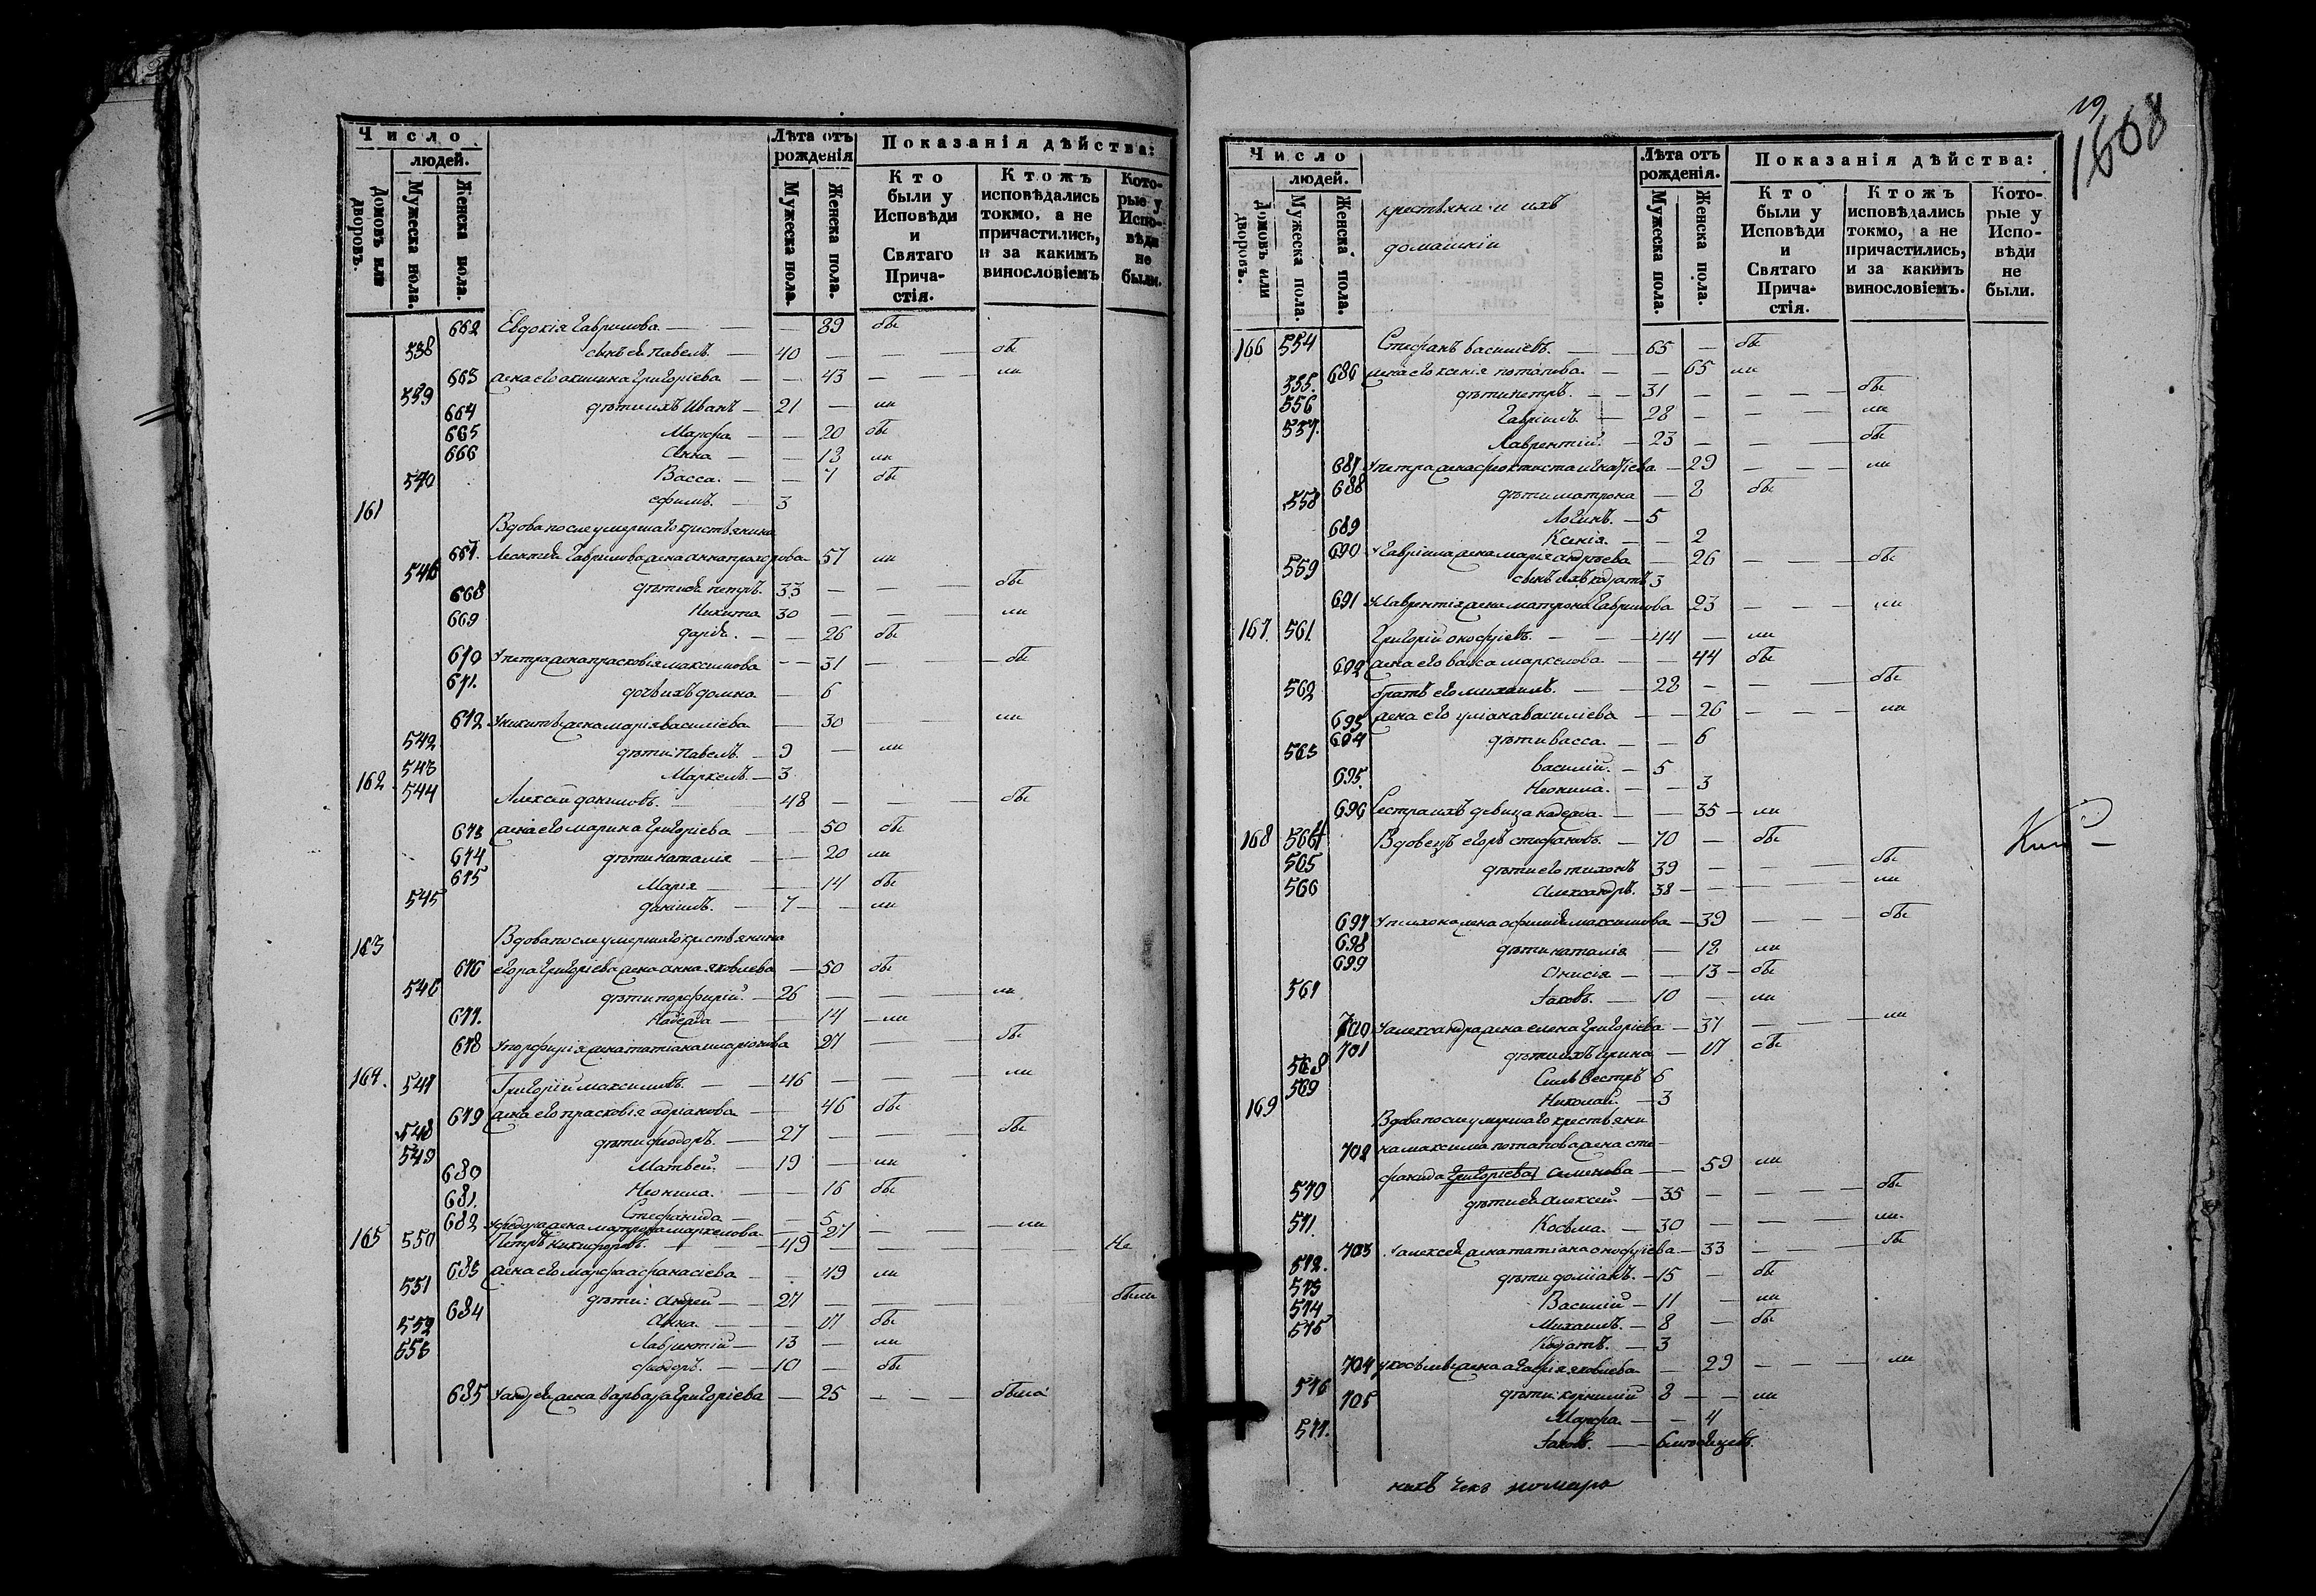 Число
людей.
Домовъ или дворовъ.
Мужеска пола.
Женска пола.
Лѣта отъ рожденія
Мужеска пола.
Женска пола.
Показанія дѣйства:
Кто были у Исповѣди и Святаго Прича-стія.
Ктожъ исповѣдались токмо, а не причастились, и за какимъ винословіемъ
Кото-рые у Испо-вѣди не были.
662 Евдокія Гаврилова — — 89 бы
538 сынъ ея Павелъ — 40 — — — бы
663 жена его Акилина Григоріева — — 43 — — — ли
539 дѣти ихъ Иванъ — 21 — ли
664 Марфа — — 20 бы
665 Анна — — 13 ли
666 Васса — — 7 бы
540 Ефимъ — 3
161 Вдова послѣ умершаго крестьянина
667 Леонтія Гаврилова жена Анна Прохорова 57 ли
дѣти ея Петръ 33 — — — бы
Никита 30 — — — ли
668 Дарія — — 26 бы
669
670 У Петра жена Прасковія Максимова — — 31 — — бы
671 дочь ихъ Домна — 6
672 У Никиты жена Марія Василіева — 30 — — ли
542 дѣти: Павелъ — 9 — ли
543 Маркелъ — 3
162 544 Алексѣй Даниловъ — 48 — — — бы
673 жена его Марина Григоріева — — 50 бы
674 дѣти Наталія — — 20 ли
675 Марія — — 14 бы
545 Даніилъ — 7 — — ли
163 Вдова послѣ умершаго крестьянина
676 Егора Григоріева жена Анна Яковлева — 50 бы
546 дѣти Порфирій — 26 — — — ли
677 Надежда — — 14 — ли
678 У Порфирія жена Татіана Иларіонова 27 — — бы
164 547 Григорій Максимовъ — — 46 — — — ли
679 жена его Прасковія Адріанова — — 46 бы
548 дѣти Ѳеодоръ — 27 — — — бы
549 Матвей — 19 — ли
680 Неонила — — 16 бы
681 Стефанида — — 5
682 У Ѳедора жена Матрона Маркелова — 27 — — — ли
165 550 Петръ Никифоровъ — 49 — — — — Не
683 жена его Марфа Афанасіева — — 49 ли
551 дѣти: Андрей — 27 — — — — были
684 Анна — — 17 бы
552 Лаврентій — 13 — ли
553 Ѳиодоръ — — 10 — бы
685 У Андрея жена Варвара Григоріева — 25 — — — была
19
1668
Число
людей.
Домовъ или дворовъ.
Мужеска пола.
Женска пола.
крестьяна и ихъ
домашніи
Лѣта отъ рожденія.
Мужеска пола.
Женска пола.
Показанія дѣйства:
Кто были у Исповѣди и Святаго Прича-стія.
Ктожъ исповѣдались токмо, а не причастились, и за какимъ винословіемъ.
Кото-рые у Испо-вѣди не были.
166 554 Стефанъ Василіевъ — — 65 — бы
686 жена его Ксенія Потапова — — 65 ли
555 дѣти Петръ — — 31 — — — — бы
556 Гавріилъ — 28 — — — ли
557 Лаврентій — 23 — — — бы
687 У Петра жена Ѳеоктиста Игнатіева — 29 — — — ли
688 дѣти Матрона — 8 бы
558 Логинъ — 5
689 Ксенія — — 2
690 У Гавріила жена Марія Андреева — 26 — — — бы
559 сынъ ихъ Кодратъ 3
691 У Лаврентія жена Матрона Гаврилова 23 — — — ли
167 561 Григорій Онофріевъ — — 44 — ли
692 жена его Васса Маркелова — — 44 бы
562 братъ его Михаилъ — — 28 — — — бы
693 жена его Уліана Василіева — — 26 — — — ли
694 дѣти Васса — — 6
563 Василій — 5
695 Неонила — — 3
696 Сестра ихъ девица Надежда — — 35 — ли
168 564 Вдовецъ Егоръ Стефановъ — 70 — бы
565 дѣти его Тихонъ 39 — — — бы
566 Александръ 38 — — — ли
697 У Тихона жена Афимія Максимова — 39 — — — бы
698 дѣти Наталія — 18 ли
699 Анисія — — 13 — бы
567 Іаковъ — 10 — ли
700 У Александра жена Елена Григоріева — 37 — — — ли
701 дѣти ихъ Ирина — 17 бы
568 Силвестръ 6
569 Николай — 3
169 Вдова послѣ умершаго крестьяни
702 на Максима Потапова жена Сте-
фанида Григоріева Семенова — — 59 ли
570 дѣти ея Алексей — 35 — — — бы
571 Косьма — 30 — — — ли
703 У Алексѣя жена Татіана Онофріева — 33 — — — бы
572 дѣти Доміанъ — 15 — бы
573 Василій — 11 — ли
574 Михаилъ — 8 — бы
575 Кодратъ — 3
704 У Косьмы жена Агафія Яковлева — 29 — — — ли
576 дѣти: Корнилій 8 — — ли
705 Марфа — — 4
577 Іаковъ — — 6 мѣсяцевъ